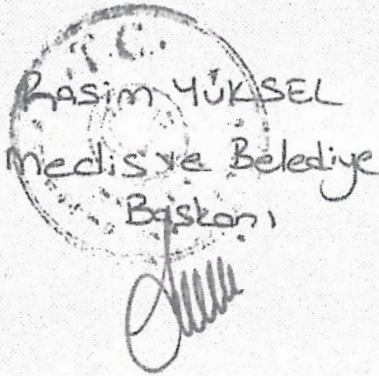 T.C.
Rasim YÜKSEL
Meclis ve Belediye
Başkanı